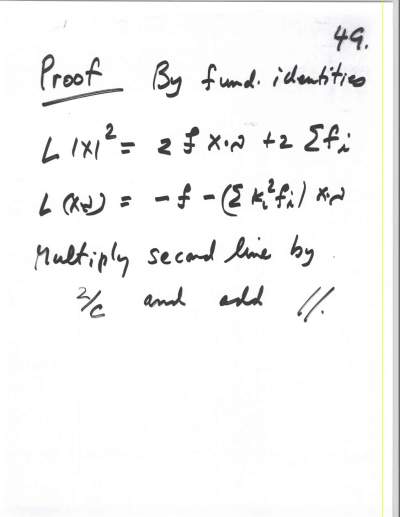 49.
Proof By fund. identities
L |X|² = 2 f x·ν + 2 Σfᵢ
L (x·ν) = - f - (Σ kᵢ²fᵢ) x·ν
Multiply second line by
2/c and add //.